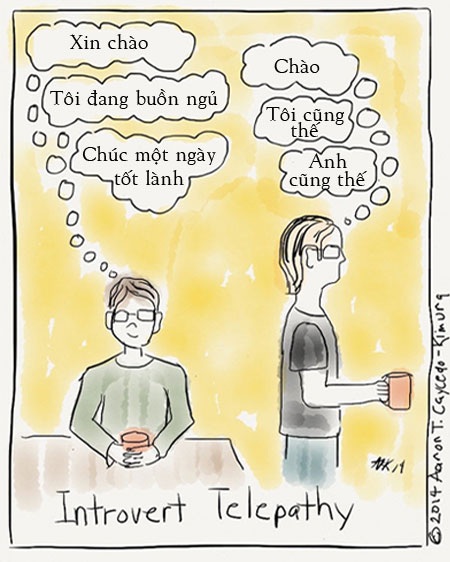 Xin chào
Tôi đang buồn ngủ
Chúc một ngày
tốt lành
Chào
Tôi cũng
thế
Anh
cũng thế
AK 14
Introvert Telepathy
© 2014 Aaron T. Caycedo-Kimura